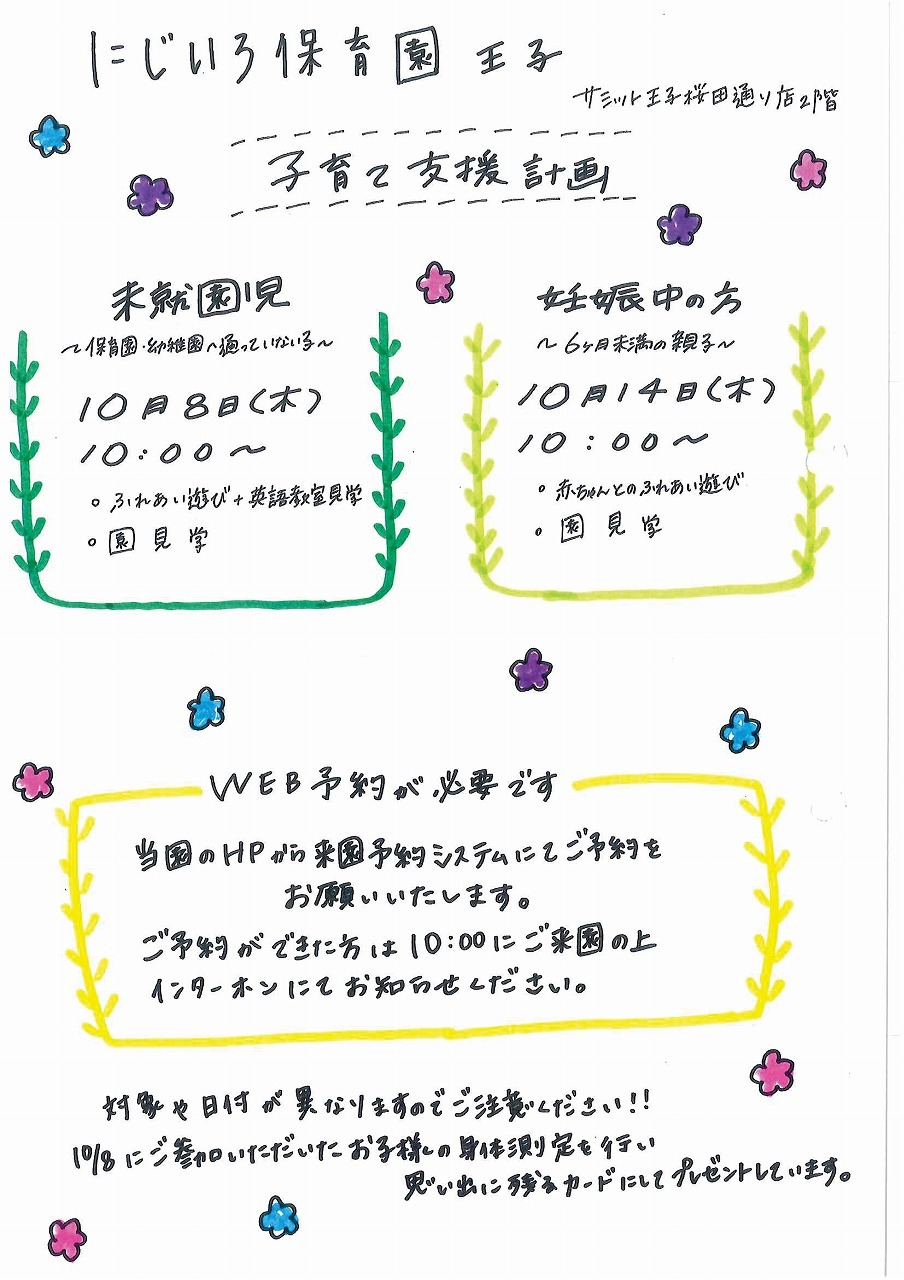 にじいろ保育園 王子
サミット王子桜田通り店2階
子育て支援計画
未就園児
～保育園・幼稚園へ通っていない子～
10月8日(木)
10:00～
○ ふれあい遊び + 英語教室見学
○ 園見学
妊娠中の方
～6ヶ月未満の親子～
10月14日(木)
10:00～
○ 赤ちゃんとのふれあい遊び
○ 園見学
WEB予約が必要です
当園のHPから来園予約システムにてご予約を
お願いいたします。
ご予約ができた方は10:00にご来園の上
インターホンにてお知らせください。
対象や日付が異なりますのでご注意ください!!
10/8にご参加いただいたお子様の身体測定を行い
思い出に残るカードにしてプレゼントしています。